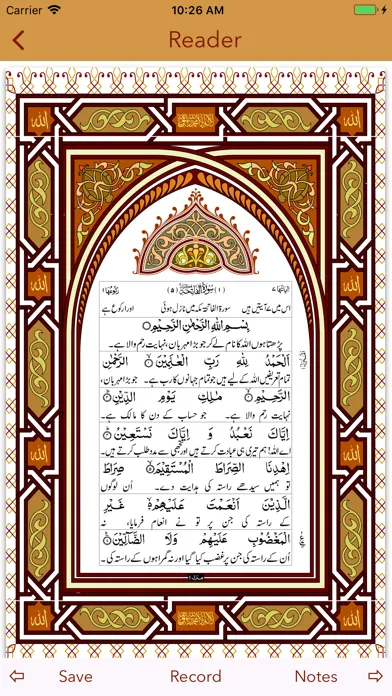 Carrier 10:26 AM
Reader
اٰیاتہا ۷ (۱) سُوْرَةُ الْفَاتِحَةِ (۵) رکوعہا ۱
اس میں ۷ آیتیں ہیں سورۃ الفاتحہ مکہ میں نازل ہوئی اور ا رکوع ہے
بِسْمِ اللّٰهِ الرَّحْمٰنِ الرَّحِيْمِ
پڑھتا ہوں اللہ کا نام لے کر جو بڑا مہربان، نہایت رحم والا ہے۔
اَلْحَمْدُ لِلّٰهِ رَبِّ الْعٰلَمِيْنَ ۙ الرَّحْمٰنِ
تمام تعریفیں اللہ کے لیے ہیں جو تمام جہانوں کا رب ہے۔ جو بڑا مہربان،
الرَّحِيْمِ ۙ مٰلِكِ يَوْمِ الدِّيْنِ ؕ
نہایت رحم والا ہے۔ جو حساب کے دن کا مالک ہے۔
اِيَّاكَ نَعْبُدُ وَ اِيَّاكَ نَسْتَعِيْنُ ؕ
اے اللہ! ہم تیری ہی عبادت کرتے ہیں اور تجھی سے مدد طلب کرتے ہیں۔
اِهْدِنَا الصِّرَاطَ الْمُسْتَقِيْمَ ۙ صِرَاطَ
تو ہمیں سیدھے راستہ کی ہدایت دے۔ اُن لوگوں
الَّذِيْنَ اَنْعَمْتَ عَلَيْهِمْ ۙ غَيْرِ
کے راستہ کی جن پر تو نے انعام فرمایا، نہ
الْمَغْضُوْبِ عَلَيْهِمْ وَلَا الضَّآلِّيْنَ
اُن کے راستہ کی جن پر غضب کیا گیا اور نہ گمراہوں کے راستہ کی۔
الله
الله
الله
الله
Save Record Notes